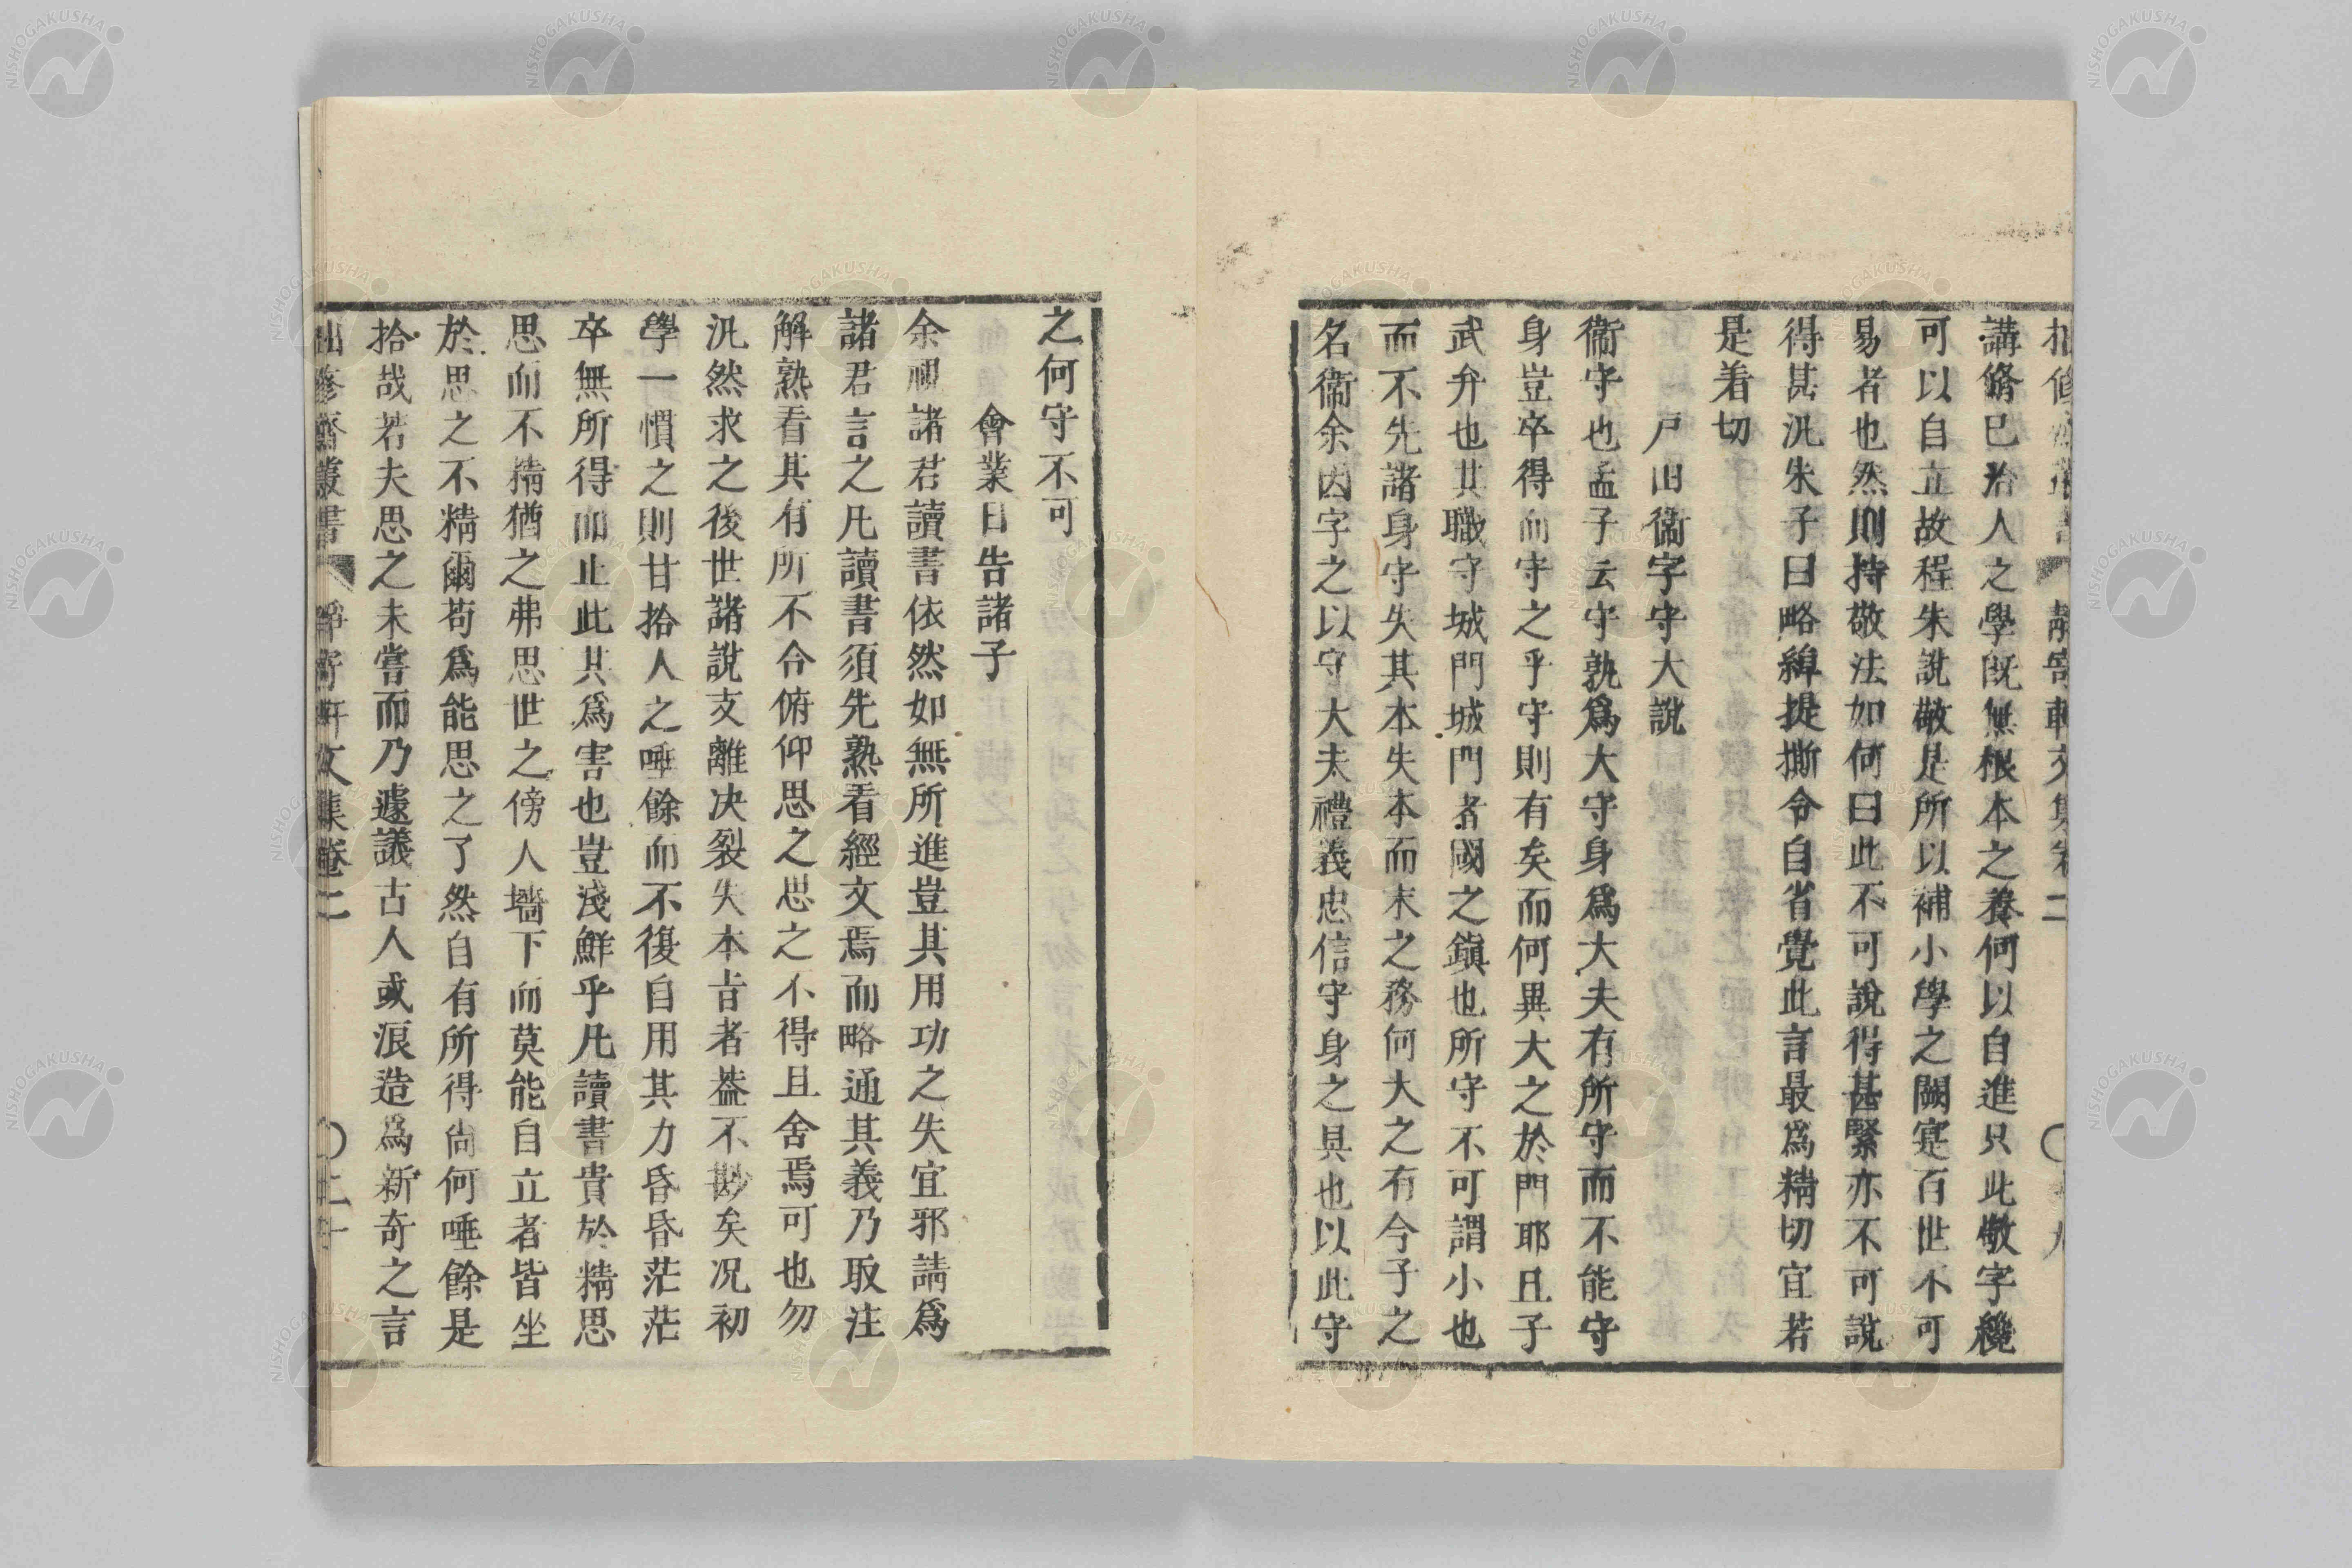 講脩己治人之學既無根本之養何以自進只此敬字纔
可以自立故程朱說敬是所以補小學之闕寔百世不可
易者也然則持敬法如何曰此不可說得甚緊亦不可說
得甚汎朱子曰略綽提撕令自省覺此言最爲精切宜若
是着切
戶田衞字守大說
衞守也孟子云守孰爲大守身爲大夫有所守而不能守
身豈卒得而守之乎守則有矣而何異大之於門耶且子
武弁也其職守城門城門者國之鎮也所守不可謂小也
而不先諸身守失其本失本而末之務何大之有今子之
名衞余因字之以守大夫禮義忠信守身之具也以此守
之何守不可
會業日告諸子
余視諸君讀書依然如無所進豈其用功之失宜邪請爲
諸君言之凡讀書須先熟看經文焉而略通其義乃取注
解熟看其有所不合俯仰思之思之不得且舍焉可也勿
汎然求之後世諸說支離决裂失本旨者葢不尠矣况初
學一慣之則甘拾人之唾餘而不復自用其力昏昏茫茫
卒無所得而止此其爲害也豈淺鮮乎凡讀書貴於精思
思而不精猶之弗思世之傍人墻下而莫能自立者皆坐
於思之不精爾苟爲能思之了然自有所得尚何唾餘是
拾哉若夫思之未嘗而乃遽議古人或浪造爲新奇之言
修齋叢書 靜寄軒文集卷二 〇二十